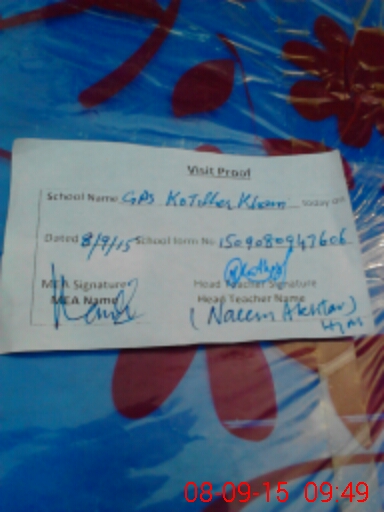 Visit Proof
School Name GPS Kotller Khan today on
Dated 8/9/15 School form No 1509080947606
MEA Signature Head Teacher Signature
MEA Name Head Teacher Name
(Naeem Akhtar)
08-09-15 09:49